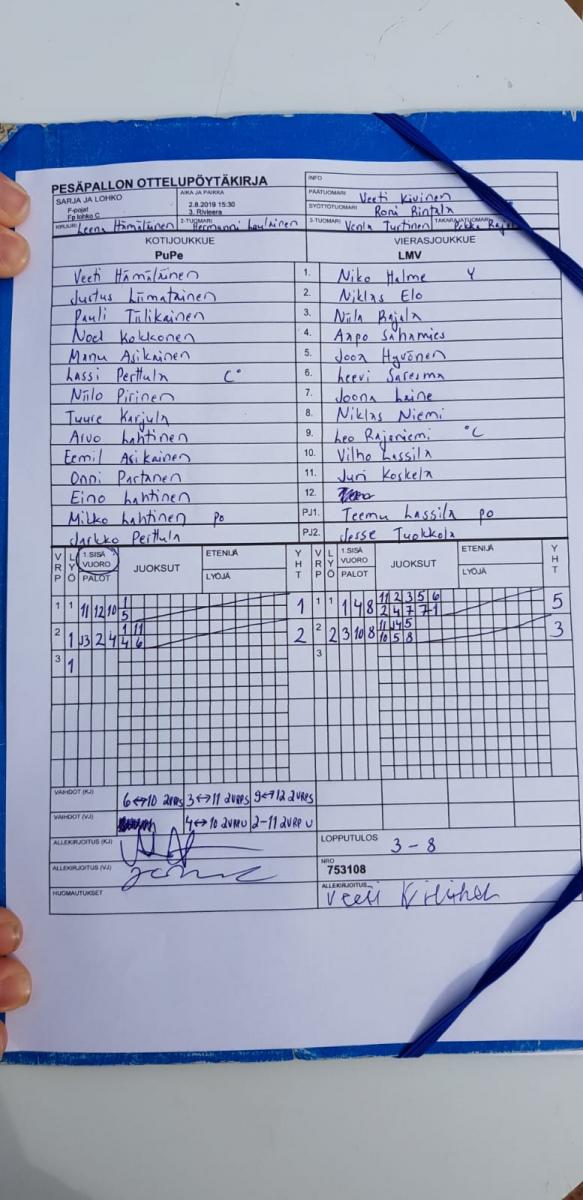 PESÄPALLON OTTELUPÖYTÄKIRJA
INFO
SARJA JA LOHKO
F-pojat
Fp lohko C
AIKA JA PAIKKA
2.8.2019 15:30
3. Rivieera
PÄÄTUOMARI Veeti Kivinen
SYÖTTÖTUOMARI Roni Rintala
KIRJURI Leena Hämäläinen
2-TUOMARI Hermanni Laulainen
3-TUOMARI Venla Turtinen TAKARAJATUOMARI Pekka
KOTIJOUKKUE VIERASJOUKKUE
PuPe LMV
Veeti Hämäläinen 1. Niko Halme Y
Justus Liimatainen 2. Niklas Elo
Pauli Tulikainen 3. Niila Rajala
Noel Kokkonen 4. Aapo Sahamies
Manu Asikainen 5. Joona Hyvönen
Lassi Perttula C 6. Leevi Saresma
Niilo Pirinen 7. Joona Laine
Tuure Karjula 8. Niklas Niemi
Arvo Lahtinen 9. Leo Rajaniemi C
Eemil Asikainen 10. Vilho Lassila
Onni Partanen 11. Juri Koskela
Eino Lahtinen 12.
Mitko Lahtinen po PJ1. Teemu Lassila po
Jarkko Perttula PJ2. Jesse Tuokkola
VRP LYÖ 1.SISÄ VUORO PALOT JUOKSUT ETENIJÄ LYÖJÄ YHT VRP LYÖ 1.SISÄ VUORO PALOT JUOKSUT ETENIJÄ LYÖJÄ YHT
1 1 11 12 10 1 1 1 1 1 4 8 11 2 3 5 6 5
5 2 4 7 7 1
2 1 3 2 4 1 11 2 2 2 3 10 8 3
4 6 10 5 8
3 1 3
VAIHDOT (KJ) 6↔10 2VRPS 3↔11 2VRPS 9↔12 2VRPS
VAIHDOT (VJ) 4↔10 2VRP U 2-11 2VRP U
ALLEKIRJOITUS (KJ)
LOPPUTULOS 3-8
ALLEKIRJOITUS (VJ)
NRO
753108
HUOMAUTUKSET
ALLEKIRJOITUS Veeti